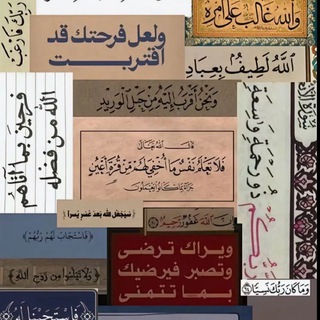 والله غالب على أمره
ولعل فرحتك قد
اقتربت
الله لطيف بعباده
ونحن أقرب إليه من حبل الوريد
فرحين بما آتاهم
الله من فضله
قال الله تعالى
فلا تعلم نفس ما أخفي لهم من قرة أعين
جزاء بما كانوا يعملون
ذو رحمة واسعة
سيجعل الله بعد عسر يسرا
الله غفور رحيم
﴿فاستجاب لهم ربهم﴾
ويراك ترضى
وتصبر فيرضيك
بما تتمنى
ولا تيأسوا من روح الله
وما كان ربك نسيا
فاستجبنا له